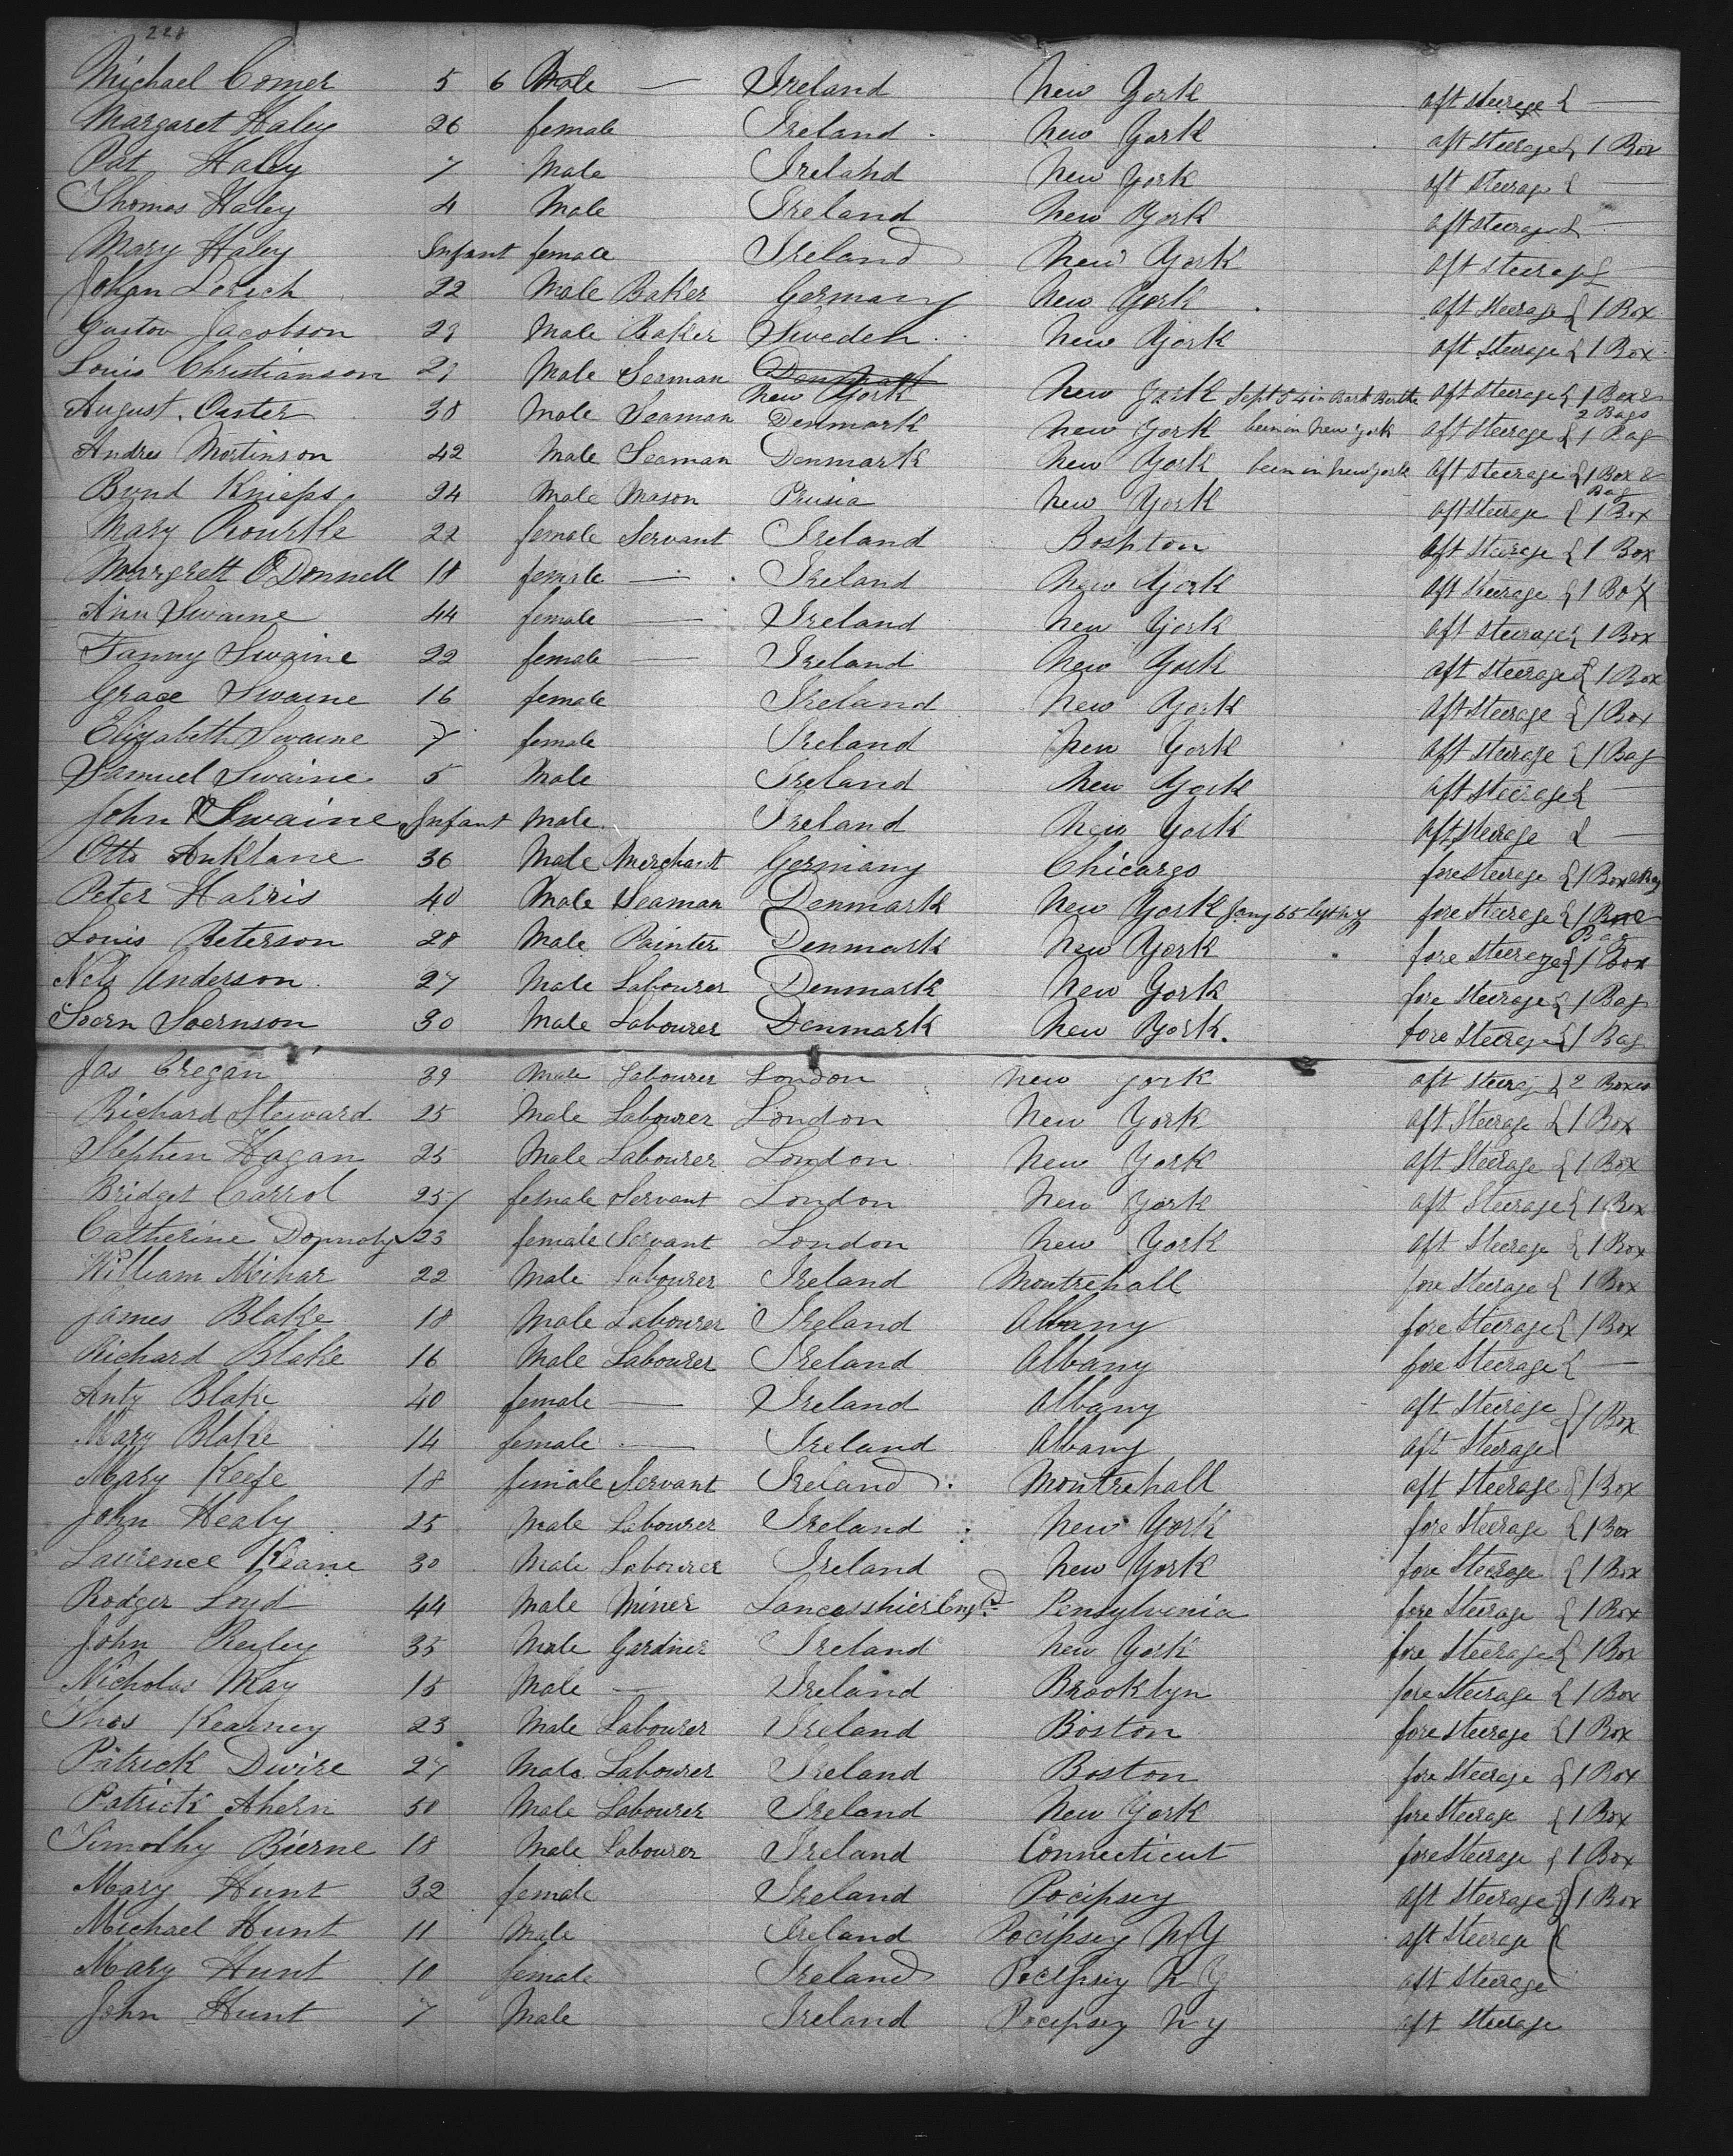 228
Michael Comer 5 6 Male — Ireland New York aft steerage { —
Margaret Haley 26 female Ireland New York aft steerage { 1 Box
Pat Haley 7 Male Ireland New York aft steerage { —
Thomas Haley 4 Male Ireland New York aft steerage {
Mary Haley Infant female Ireland New York aft steerage {
Johan Lorich 22 Male Baker Germany New York aft steerage { 1 Box
Gustov Jacobson 23 Male Baker Sweden New York aft steerage { 1 Box
Louis Christianson 23 Male Seaman Denmark New York New York Sept 54 in Bark aft steerage { 1 Box & 2 Bags
August Oaster 38 Male Seaman Denmark New York been in New York aft steerage { 1 Bag
Andres Mortinson 42 Male Seaman Denmark New York been in New York aft steerage { 1 Box & Bag
Bund Knieps 24 Male Mason Prusia New York aft steerage { 1 Box
Mary Rourkle 22 female Servant Ireland Boshton aft steerage { 1 Box
Margrett O'Donnell 18 female — Ireland New York aft steerage { 1 Box
Ann Swaine 44 female — Ireland New York aft steerage { 1 Box
Fanny Swaine 22 female — Ireland New York aft steerage { 1 Box
Grace Swaine 16 female Ireland New York aft steerage { 1 Box
Elizabeth Swaine 7 female Ireland New York aft steerage { 1 Bag
Samuel Swaine 5 Male Ireland New York aft steerage { —
John Swaine Infant Male Ireland New York aft steerage { —
Otto Anklane 36 Male Merchant Germany Chicargo fore steerage { 1 Box & Bag
Peter Harris 40 Male Seaman Denmark New York Jany 65 fore steerage { 1 Box & Bag
Louis Peterson 28 Male Painter Denmark New York fore steerage { 1 Box
Nels Anderson 27 Male Labourer Denmark New York fore steerage { 1 Bag
Soern Soernson 30 Male Labourer Denmark New York. fore steerage { 1 Bag
Jas Cregan 39 Male Labourer London New York aft steerag { 2 Boxes
Richard Steward 25 Male Labourer London New York aft steerage { 1 Box
Stephen Hagan 25 Male Labourer London New York aft steerage { 1 Box
Bridget Carrol 25 female Servant London New York aft steerage { 1 Box
Catherine 23 female Servant London New York aft steerage { 1 Box
William Mihar 22 Male Labourer Ireland Montrehall fore steerage { 1 Box
James Blake 18 Male Labourer Ireland Albany fore steerage { 1 Box
Richard Blake 16 Male Labourer Ireland Albany fore steerage { —
Anty Blake 40 female — Ireland Albany aft steerage { 1 Box
Mary Blake 14 female — Ireland Albany aft steerage
Mary Keefe 18 female Servant Ireland Montrehall aft steerage { 1 Box
John Healy 25 Male Labourer Ireland New York fore steerage { 1 Box
Laurence Keane 30 Male Labourer Ireland New York fore steerage { 1 Box
Rodger Loyd 44 Male Miner Lancasshier Engld Pensylvenia fore steerage { 1 Box
John Reiley 35 Male Gardner Ireland New York fore steerage { 1 Box
Nicholas May 15 Male — Ireland Brooklyn fore steerage { 1 Box
Thos Kearney 23 Male Labourer Ireland Boston fore steerage { 1 Box
Patrick Dwire 27 Male Labourer Ireland Boston fore steerage { 1 Box
Patrick Ahern 50 Male Labourer Ireland New York fore steerage { 1 Box
Timothy Bierne 18 Male Labourer Ireland Connecticut fore steerage { 1 Box
Mary Hunt 32 female Ireland Pocipsey aft steerage { 1 Box
Michael Hunt 11 Male Ireland Pocipsey N Y aft steerage {
Mary Hunt 10 female Ireland Pocipsey N Y aft steerage
John Hunt 7 Male Ireland Pocipsey N Y aft steerage